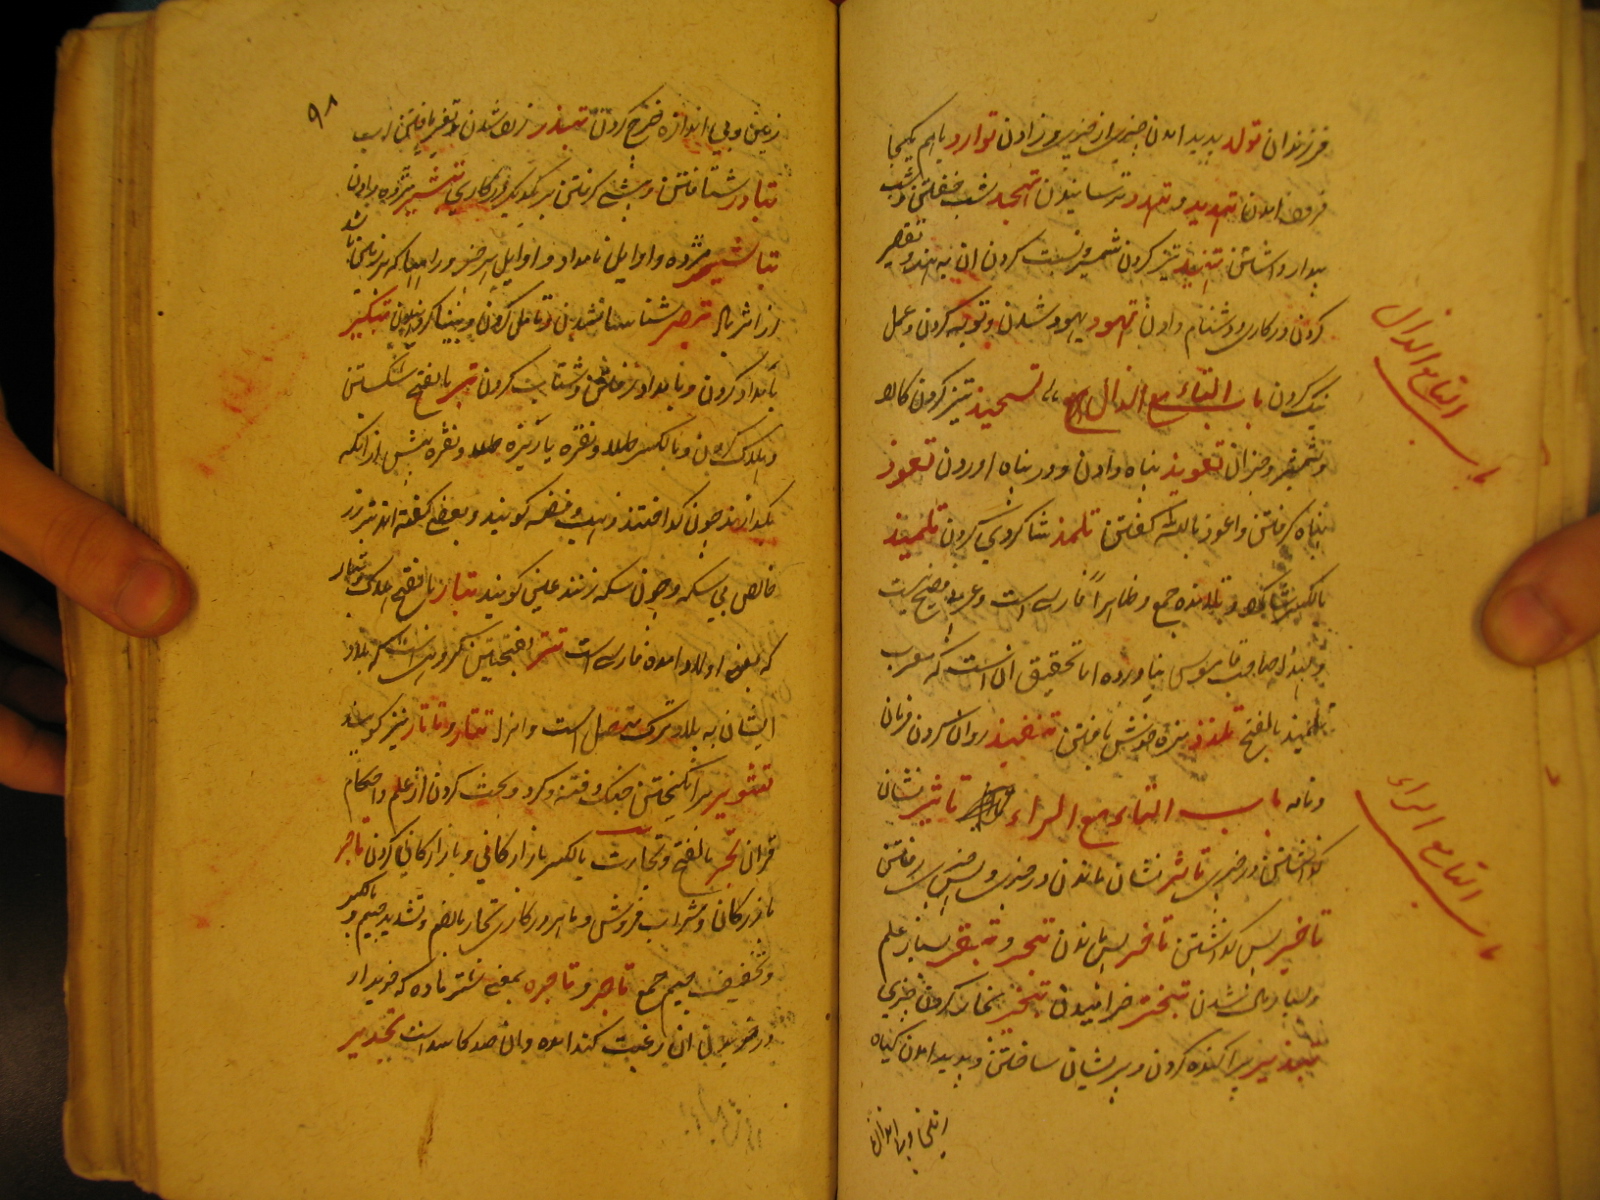 فرزندان تولد پدید امدن چیزی از چیزی و زادن توارد باهم یکجا
فرود امدن تهدید و تهدد ترسانیدن تهجد شب خفتن و شب
بیدار داشتن تیز کردن شمشیر و نسبت کردن ان به هند و تقصیر
کردن در کاری و دشنام دادن تهود یهود شدن و توبه کردن و عمل
نیک کردن باب التاء مع الذال تشحیذ تیز کردن کارد
و شمشیر و جز ان تعویذ پناه دادن و در پناه اوردن تعوذ
پناه گرفتن و اعوذ بالله گفتن تلمذ شاگردی کردن تلمیذ
بالکسر شاگرد و تلامذه جمع و ظاهرا فارسی است و عربی فصیح نیست
و لهذا صاحب قاموس نیاورده اما تحقیق ان است که معرب
تلمیذ بالفتح تلذذ مزه خوش یافتن تنفیذ روان کردن فرمان
و نامه باب التاء مع الراء تاثیر نشان
گذاشتن در چیزی تاثر نشان ماندن در چیزی و پس چیزی رفتن
تاخیر پس گذاشتن تاخر پس ماندن تبحر و تبقر بسیار علم
و بسیار مال شدن تبختر خرامیدن تبخر بخار کردن چیزی
تبذیر پراکنده کردن و پریشان ساختن و پدید امدن گیاه
زمین و بی اندازه
باب التاء مع الذال
باب التاء مع الراء
۹۸
زمین و بی اندازه خرج کردن تبذر پریشان شدن و تغیر یافتن اب
تبادر شتافتن و پیشی گرفتن بر یکدیگر در کاری تبشیر مژده دادن
تباشیر مژده و اوایل بامداد و اوایل هر چیز
تبصر شناسا شدن و تامل کردن و بینا گردیدن تبکیر
بامداد کردن و بامداد رفتن و شتاب کردن تبر بالفتح شکستن
و هلاک کردن و بالکسر طلا و نقره یا ریزه طلا و نقره پیش از انکه
بگدازند چون گداختند ذهب و فضه گویند و بعضی گفته اند تبر زر
خالص بی سکه و چون سکه زنند عین گویند تبار بالفتح هلاک و تبار
که بمعنی اولاد امده فارسی است تتر بفتحتین گروهی است که بلاد
ایشان به بلاد ترک متصل است و انرا تتار و تاتار نیز گویند
تثویر برانگیختن جنگ و فتنه و گرد و بحث کردن از علم و احکام
قران تجر بالفتح و تجارت بالکسر بازارگانی و بازارگانی کردن تاجر
بازرگان و شراب فروش و ماهر در کاری تجار بالضم و تشدید جیم و بالکسر
و تخفیف جیم جمع تاجر و تاجره بمعنی شتر ماده که خریدار
در خریدن ان رغبت کند امده و ان ضد کاسد است تجدیر